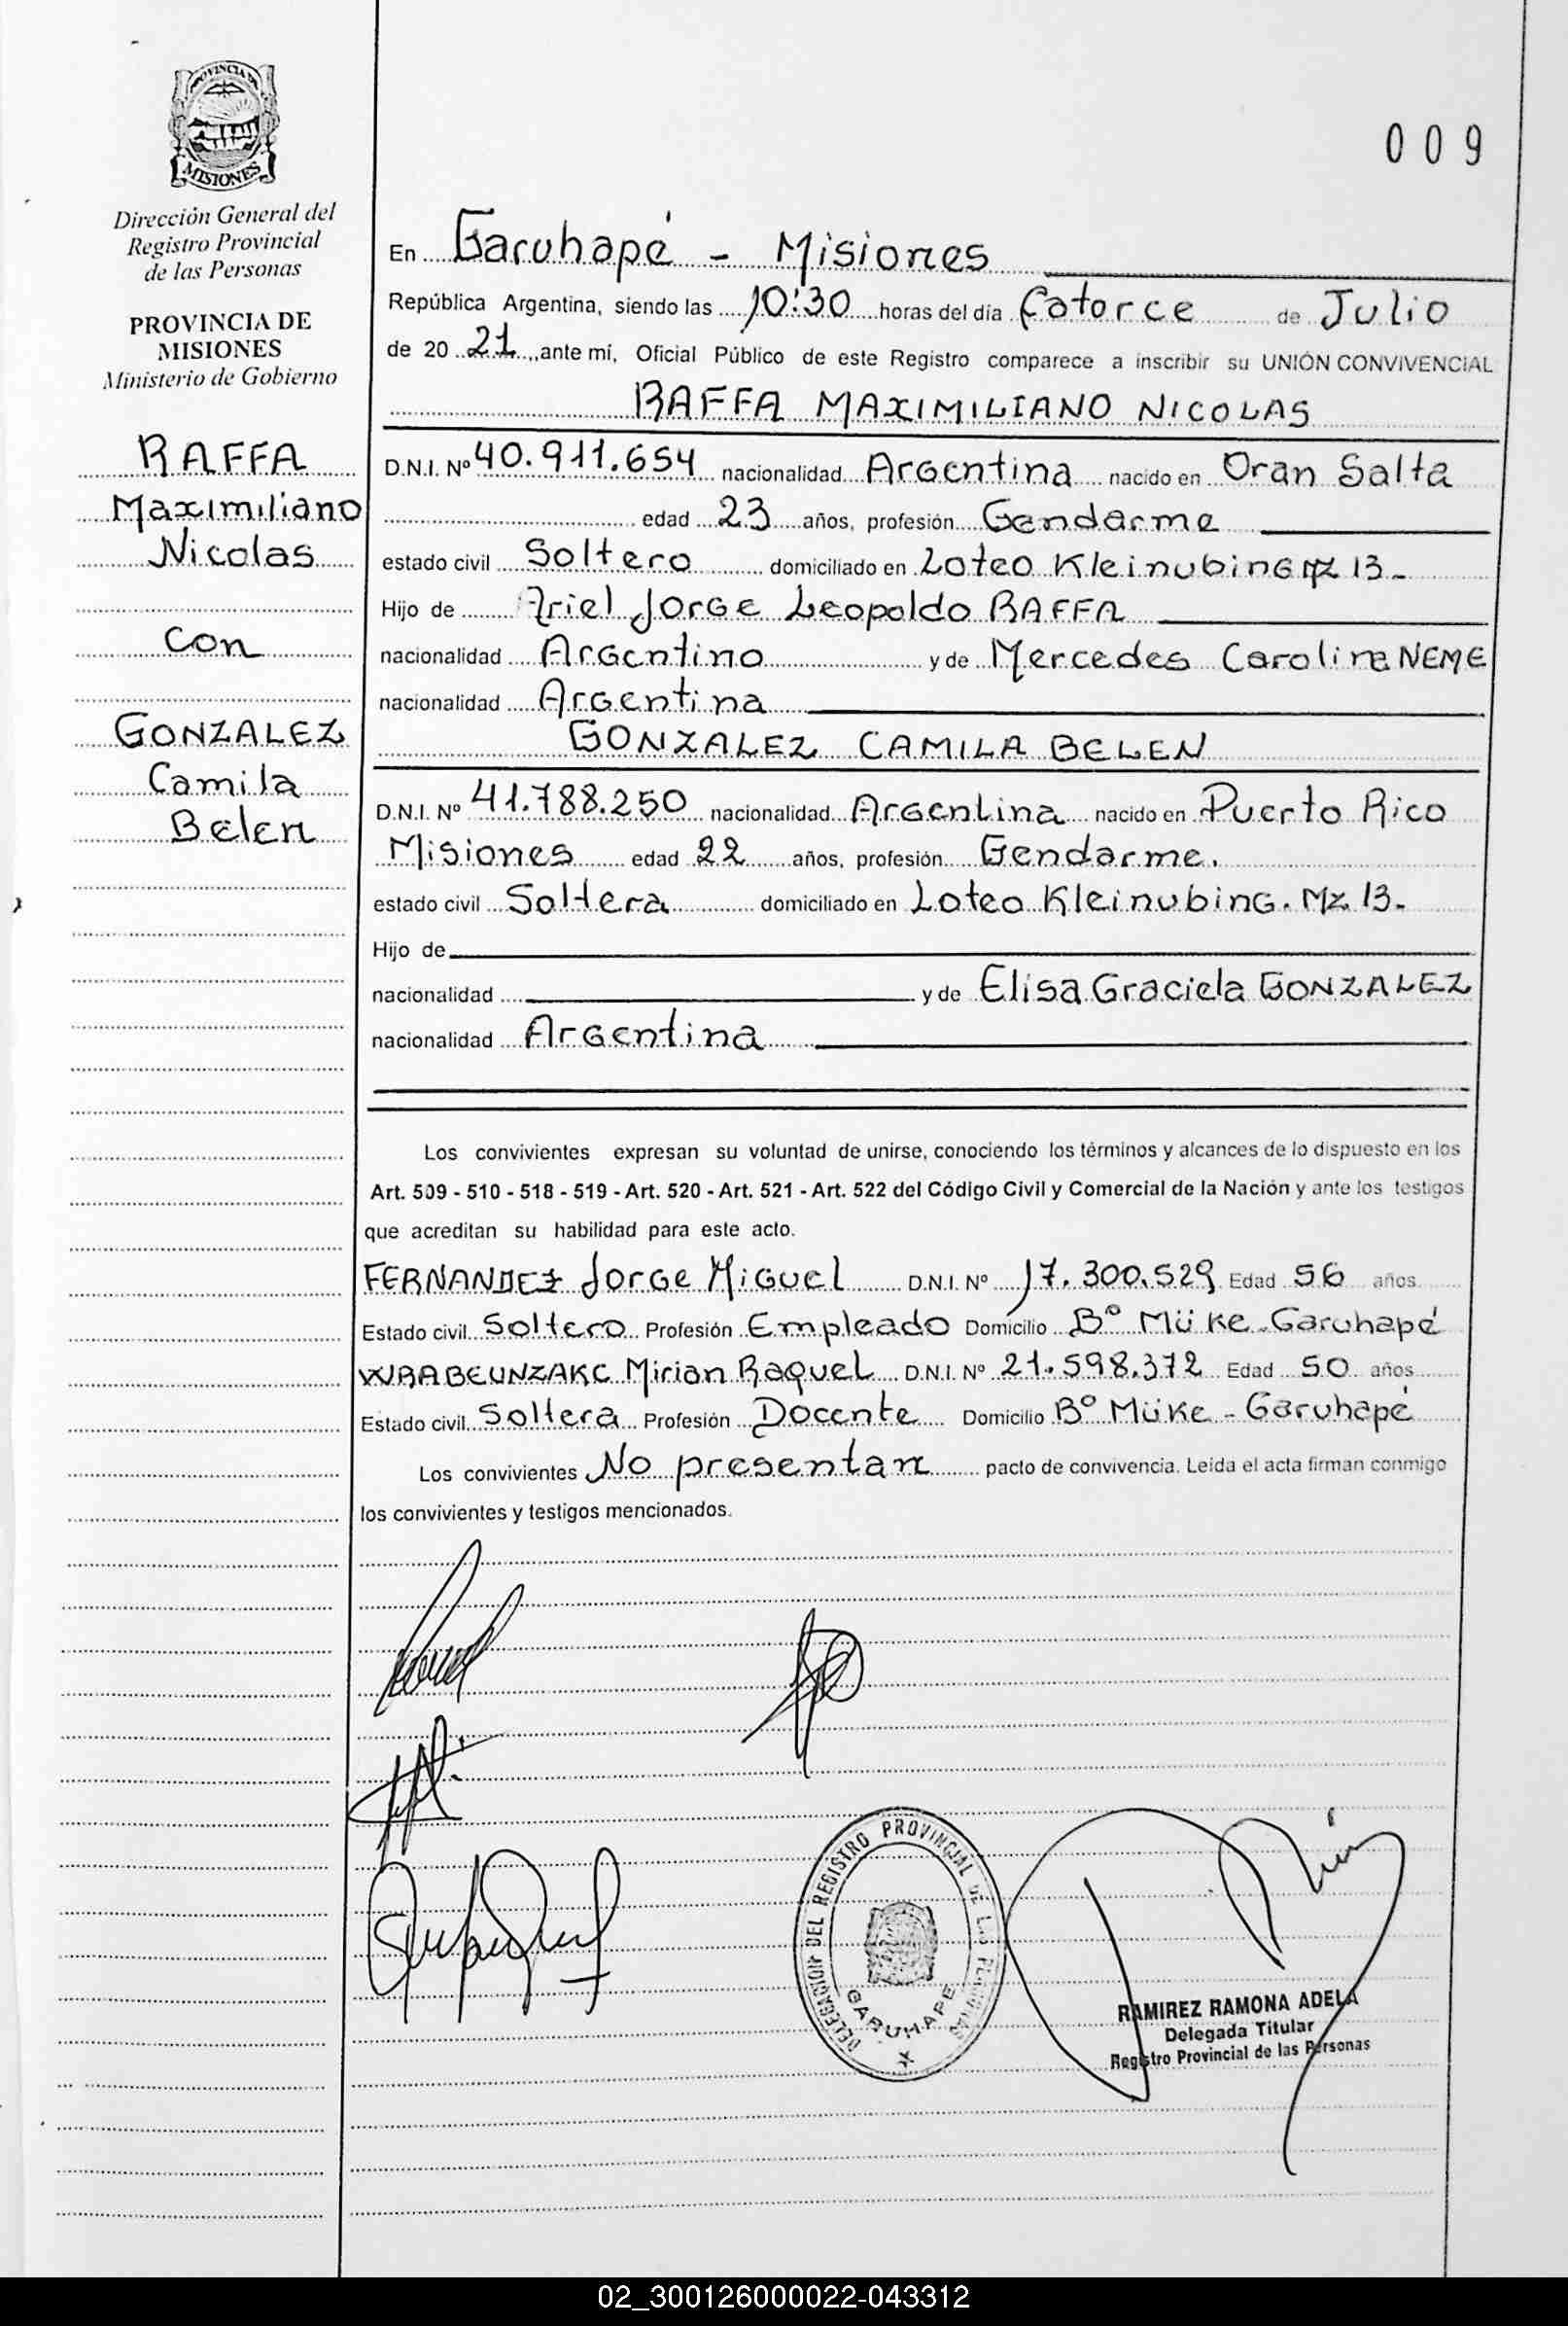 PROVINCIA DE
MISIONES
Dirección General del
Registro Provincial
de las Personas
PROVINCIA DE
MISIONES
Ministerio de Gobierno
RAFFA
Maximiliano
Nicolas
Con
GONZALEZ
Camila
Belen
009
En Garuhapé - Misiones
República Argentina, siendo las 10:30 horas del día Catorce de Julio
de 20 21, ante mí, Oficial Público de este Registro comparece a inscribir su UNIÓN CONVIVENCIAL
RAFFA MAXIMILIANO NICOLAS
D.N.I. Nº 40.911.654 nacionalidad Argentina nacido en Oran Salta
edad 23 años, profesión Gendarme
estado civil Soltero domiciliado en Loteo Kleinubing Mz 13-
Hijo de Ariel Jorge Leopoldo RAFFA
nacionalidad Argentino y de Mercedes Carolina NEME
nacionalidad Argentina
GONZALEZ CAMILA BELEN
D.N.I. Nº 41.788.250 nacionalidad Argentina nacido en Puerto Rico
Misiones edad 22 años, profesión Gendarme.
estado civil Soltera domiciliado en Loteo Kleinubing. Mz 13-
Hijo de
nacionalidad y de Elisa Graciela GONZALEZ
nacionalidad Argentina
Los convivientes expresan su voluntad de unirse, conociendo los términos y alcances de lo dispuesto en los
Art. 509 - 510 - 518 - 519 - Art. 520 - Art. 521 - Art. 522 del Código Civil y Comercial de la Nación y ante los testigos
que acreditan su habilidad para este acto.
FERNANDEZ Jorge Miguel D.N.I. Nº 17.300.529 Edad 56 años
Estado civil Soltero Profesión Empleado Domicilio Bº Müke - Garuhapé
Mirian Raquel D.N.I. Nº 21.598.372 Edad 50 años
Estado civil Soltera Profesión Docente Domicilio Bº Müke - Garuhapé
Los convivientes No presentan pacto de convivencia. Leída el acta firman conmigo
los convivientes y testigos mencionados.
DELEGACION DEL REGISTRO PROVINCIAL DE LAS PERSONAS
GARUHAPE
RAMIREZ RAMONA ADELA
Delegada Titular
Registro Provincial de las Personas
02_300126000022-043312